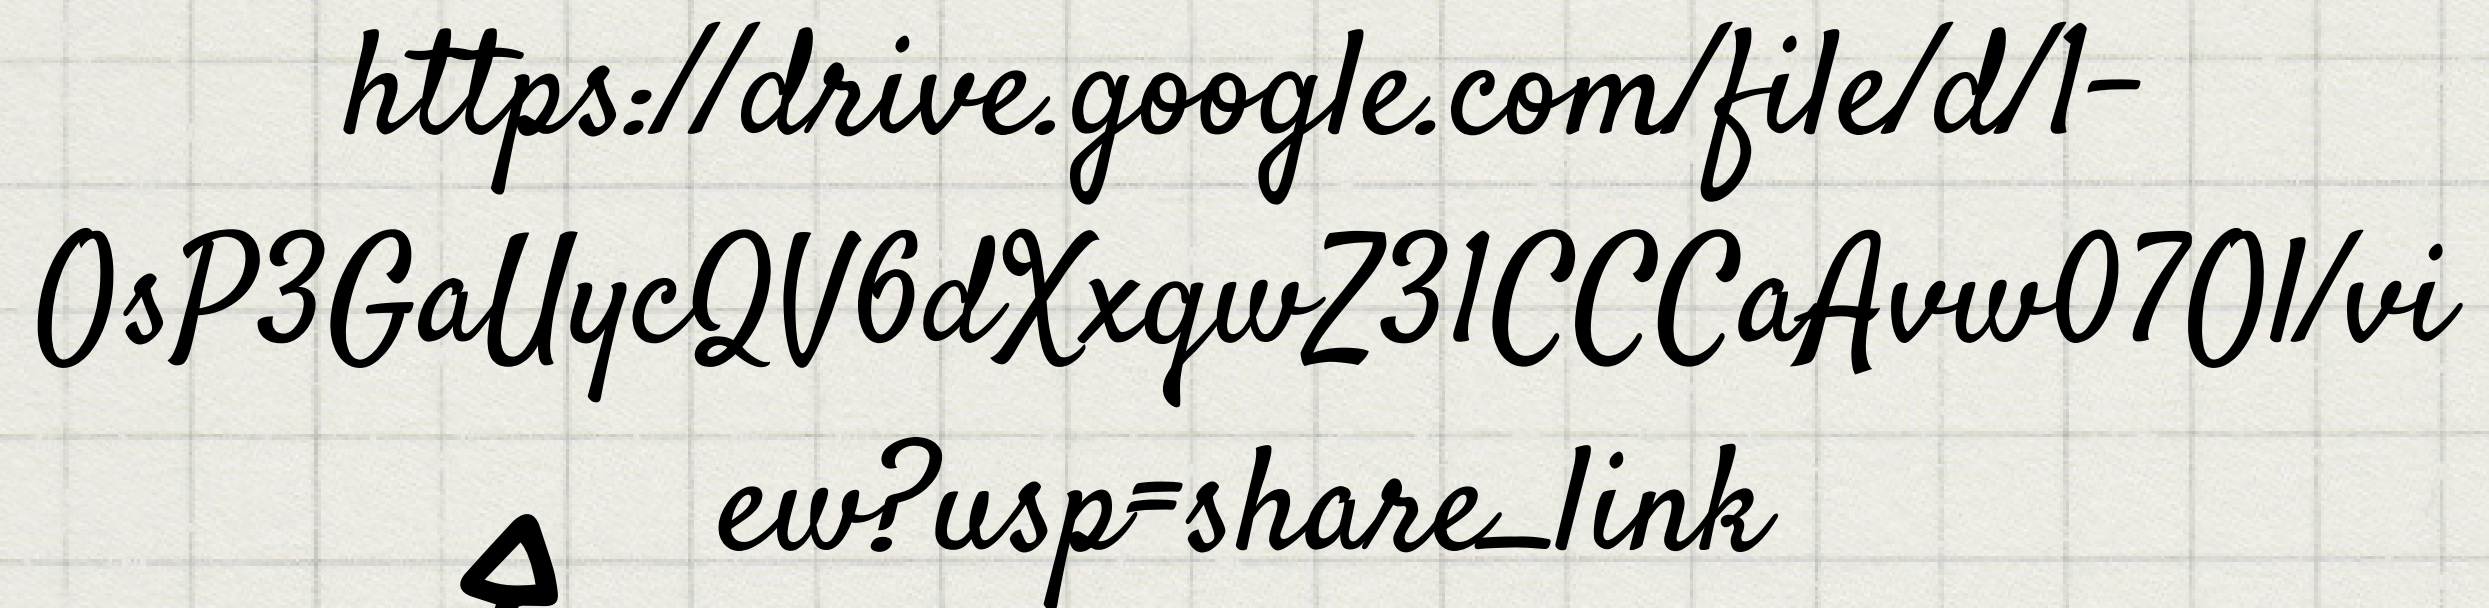 https://drive.google.com/file/d/1-
OsP3GaUycQV6dXxqwZ31CCCaAvw07Ol/vi
ew?usp=share_link